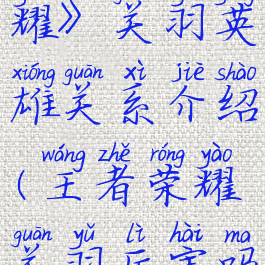 耀》关羽英
xióng guān xì jiè shào
雄关系介绍
wáng zhě róng yào
(王者荣耀
guān yǔ lì hài ma
关羽厉害吗